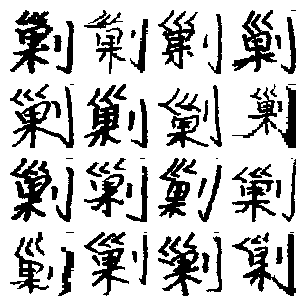 剿剿剿剿
剿剿剿剿
剿剿剿剿
剿剿剿剿